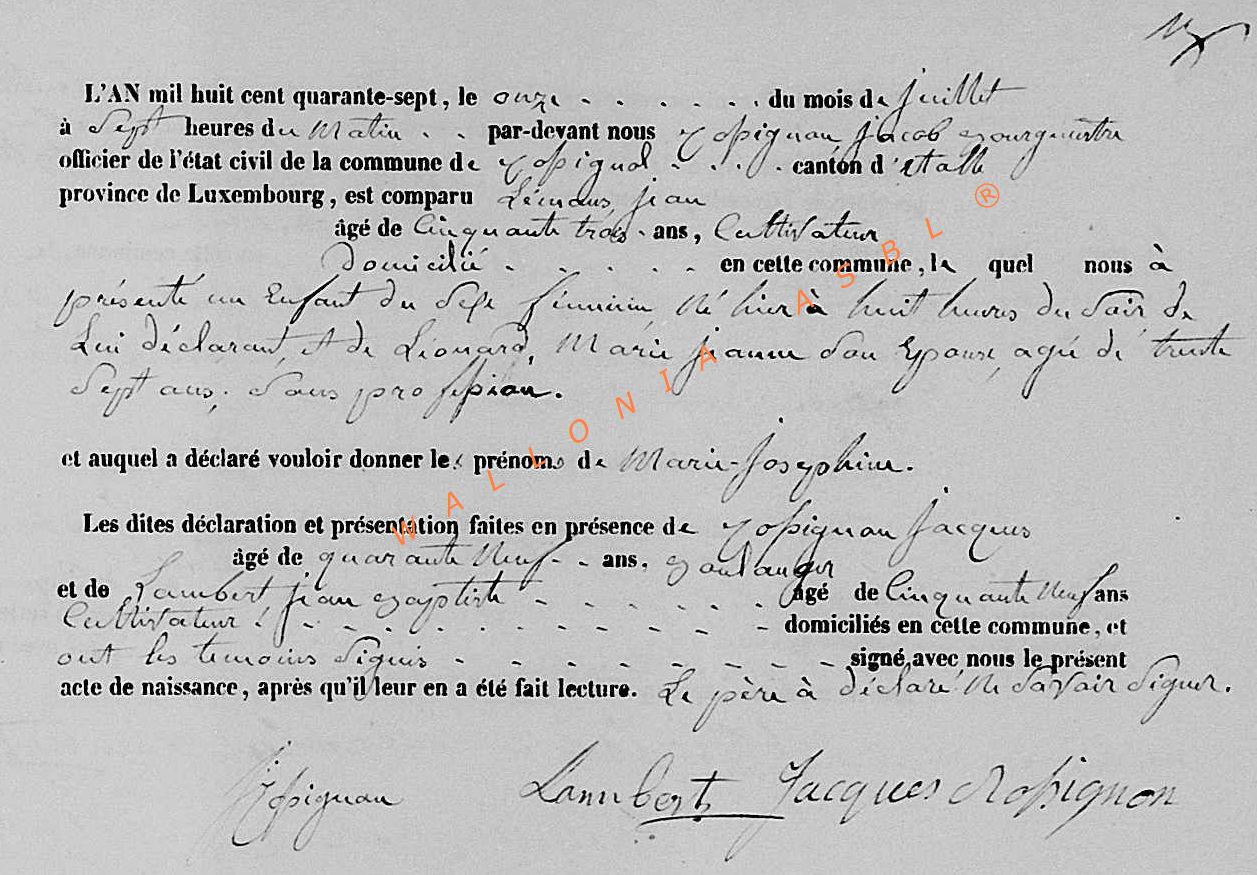 L'AN mil huit cent quarante-sept, le onze . . . . . . du mois de juillet
à Sept heures du Matin . . par-devant nous Rossignon, jacob Bourgmestre
officier de l'état civil de la commune de Rossignol - . . . canton d'étalle
province de Luxembourg, est comparu jean
âgé de Cinquante trois - ans, Cultivateur
Domicilié . . . . . en cette commune, le quel nous à
présenté un Enfant du Sexe féminin, Né hier à huit heures du Soir de
Lui déclarant, et de Léonard, Marie jeanne Son Epouse, agée de trente
Sept ans, Sans profession.
et auquel a déclaré vouloir donner les prénoms de Marie-Josephine.
Les dites déclaration et présentation faites en présence de Rossignon Jacques
âgé de quarante Neuf - . ans, Boulanger
et de Lambert jean Baptiste - . . . . . . âgé de Cinquante Neuf ans
Cultivateur . - . - . - . - . - domiciliés en cette commune, et
ont les temoins Signés - . - . - . - . - signé avec nous le présent
acte de naissance, après qu'il leur en a été fait lecture. Le père à déclaré Ne Savoir Signer.
Rossignon Lambert Jacques Rossignon
WALLONIA ASBL ®